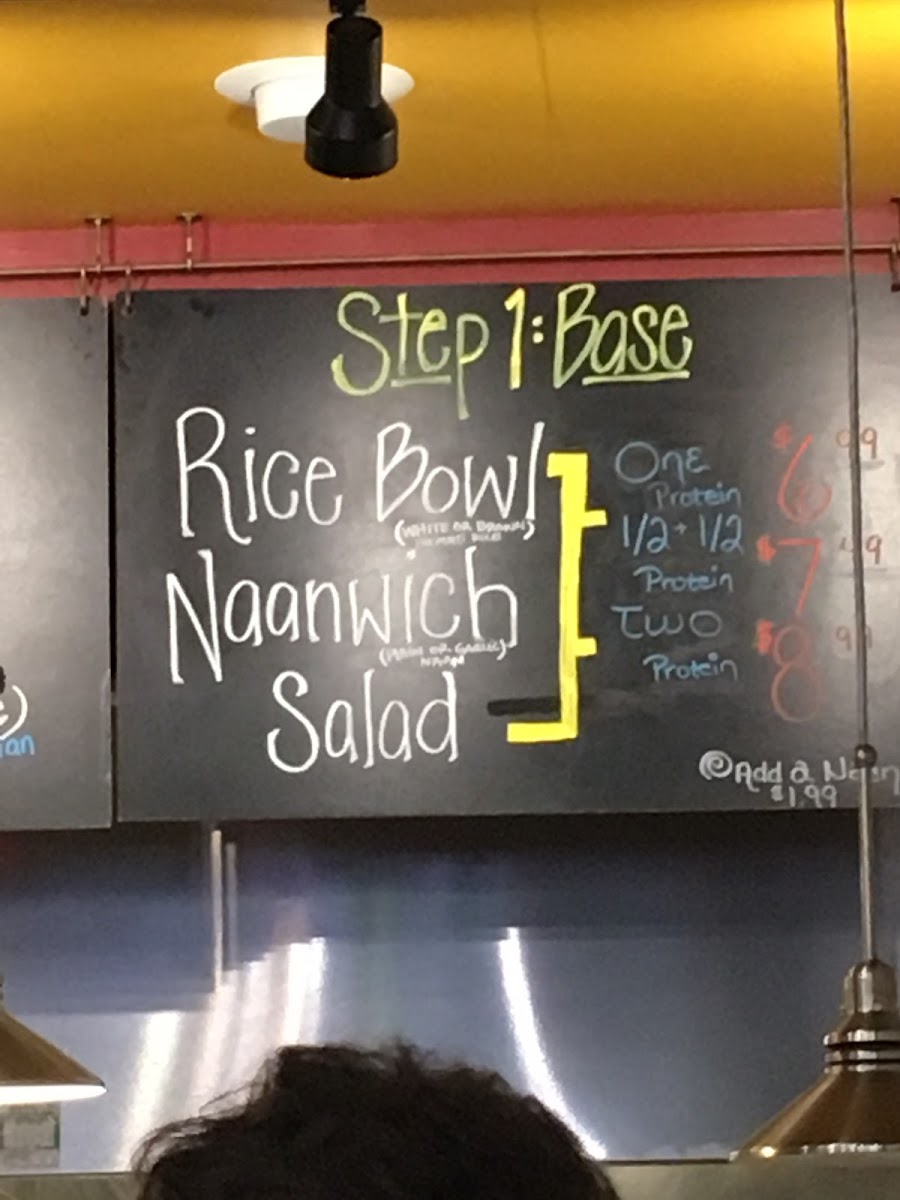 Step 1: Base
Rice Bowl
(WHITE OR BROWN)
Naanwich
(PLAIN OR GARLIC)
NAAN
Salad
One $6.99
Protein
1/2 + 1/2 $7.49
Protein
Two $8.99
Protein
Add a Naan
$1.99